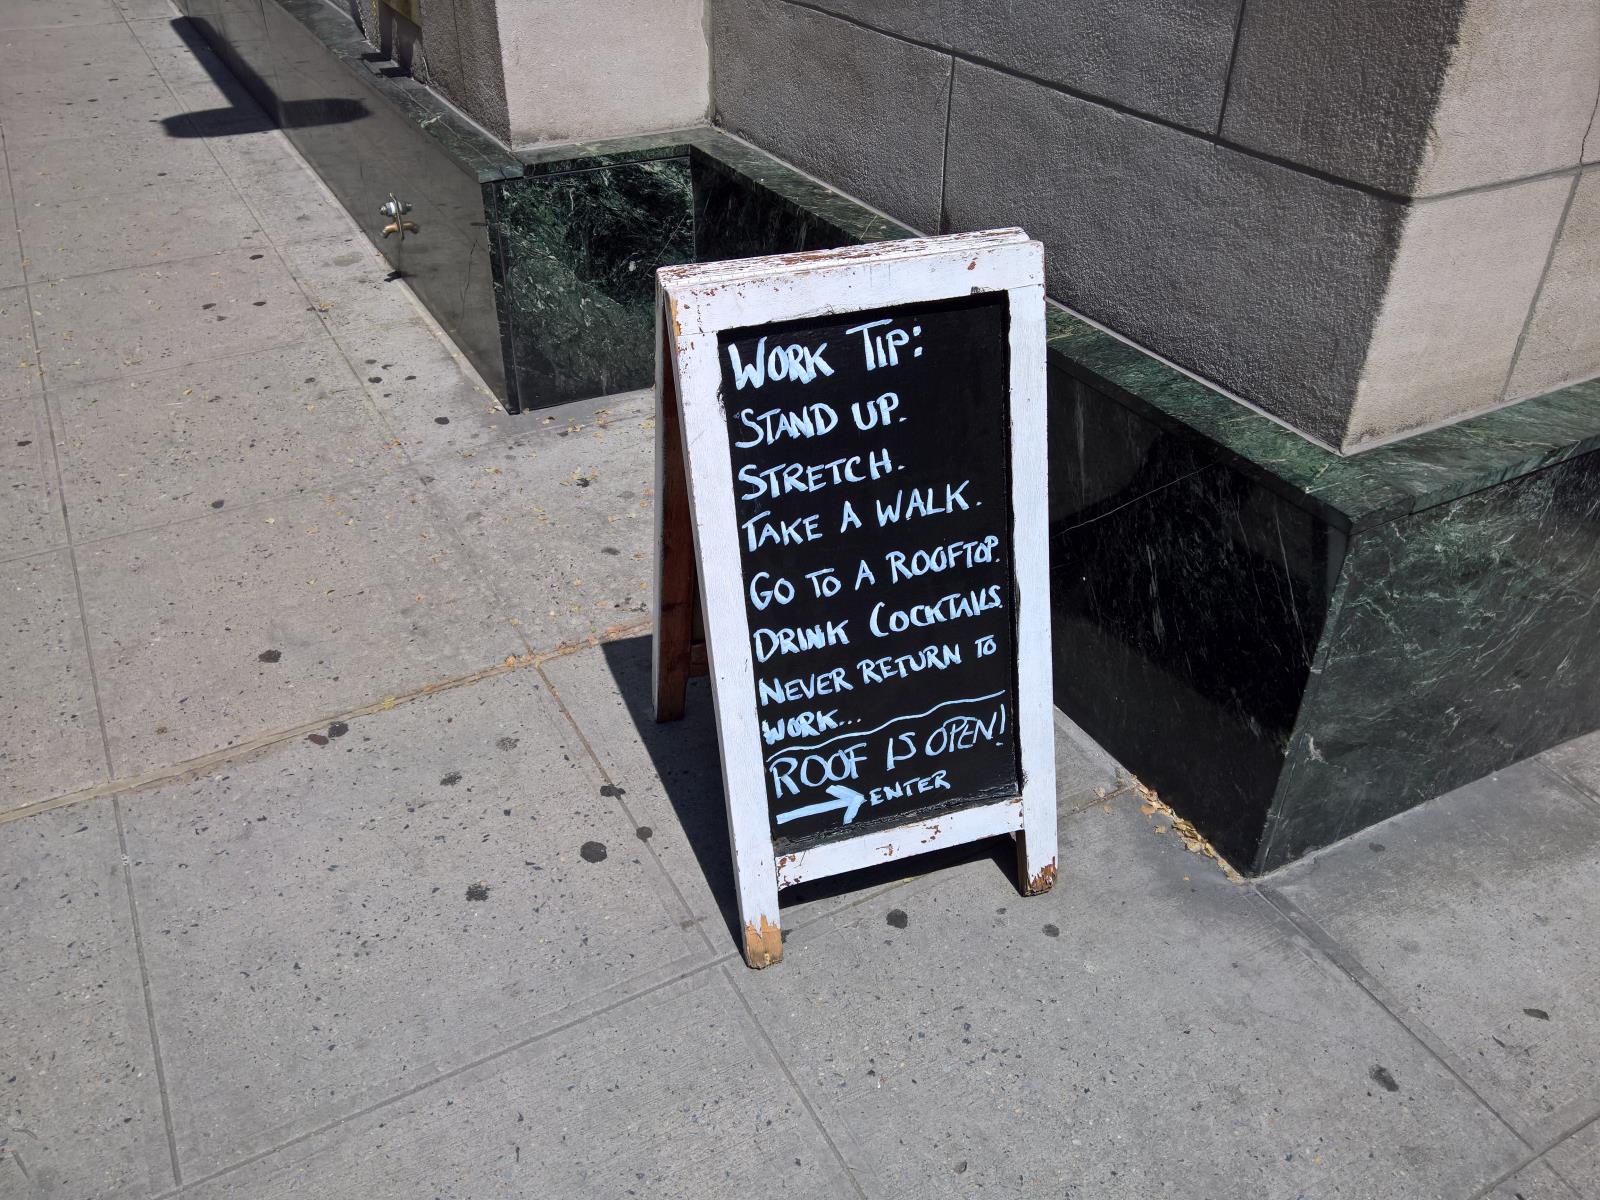 WORK TIP:
STAND UP.
STRETCH.
TAKE A WALK.
GO TO A ROOFTOP.
DRINK COCKTAILS.
NEVER RETURN TO
WORK...
ROOF IS OPEN!
→ ENTER